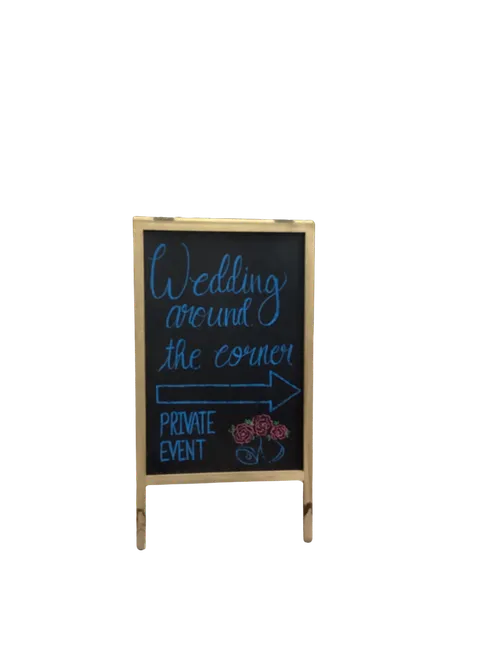 Wedding
around
the corner
PRIVATE
EVENT